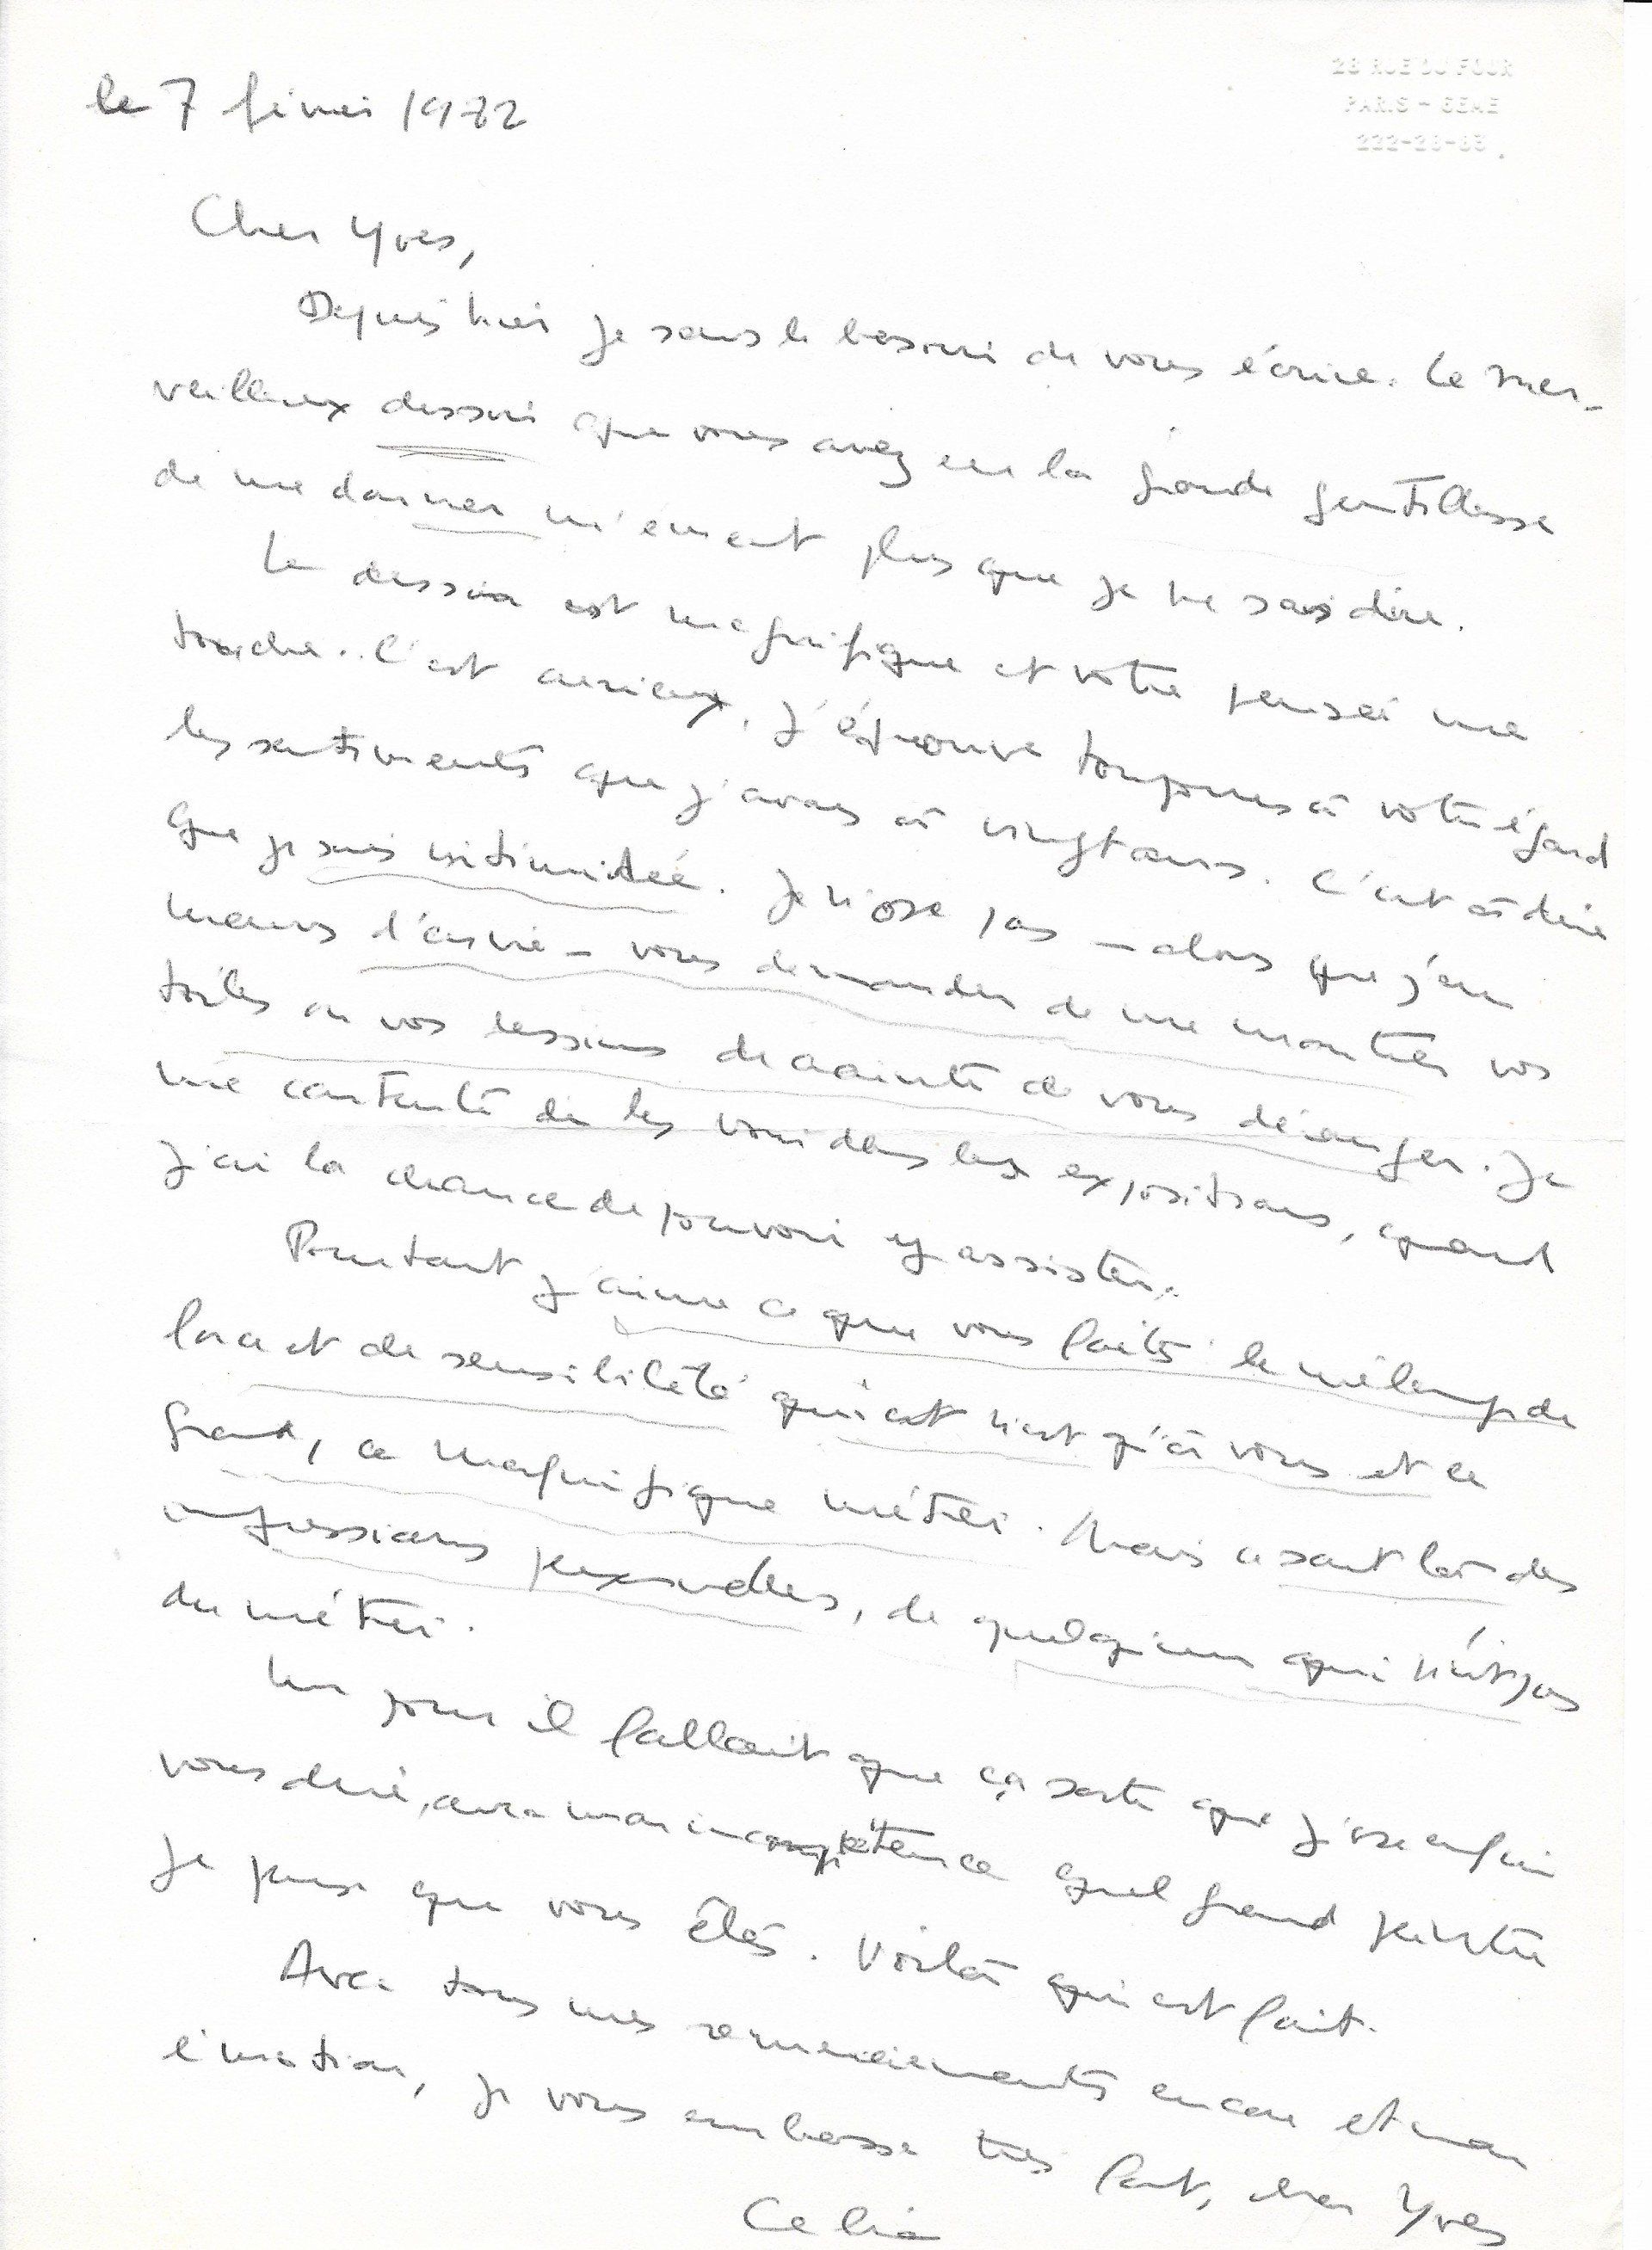 28 RUE DU FOUR
PARIS - 6EME
222-26-63
le 7 février 1982
Cher Yves,
Depuis hier je sens le besoin de vous écrire. Le mer-
veilleux dessin que vous avez eu la grande gentillesse
de me donner m'émeut plus que je ne sais dire.
Le dessin est magnifique et votre pensée me
touche. C'est curieux, j'éprouve toujours à votre égard
les sentiments que j'avais à vingt ans. C'est à dire
que je suis intimidée. Je n'ose pas – alors que j'en
meurs d'envie – vous demander de me montrer vos
toiles ou vos dessins de crainte de vous déranger. Je
me contente de les voir dans les expositions, quand
j'ai la chance de pouvoir y assister.
Pourtant j'aime ce que vous faites le mélange de
force et de sensibilité qui est n'est qu'à vous et ce
grand, ce magnifique métier. Mais ce sont là des
impressions personnelles, de quelqu'un qui n'est pas
du métier.
Un jour il fallait que ça sorte que j'ose enfin
vous dire, avec mon incompétence quel grand peintre
je pense que vous êtes. Voilà qui est fait.
Avec tous mes remerciements encore et mon
émotion, je vous embrasse très fort, cher Yves
Celia